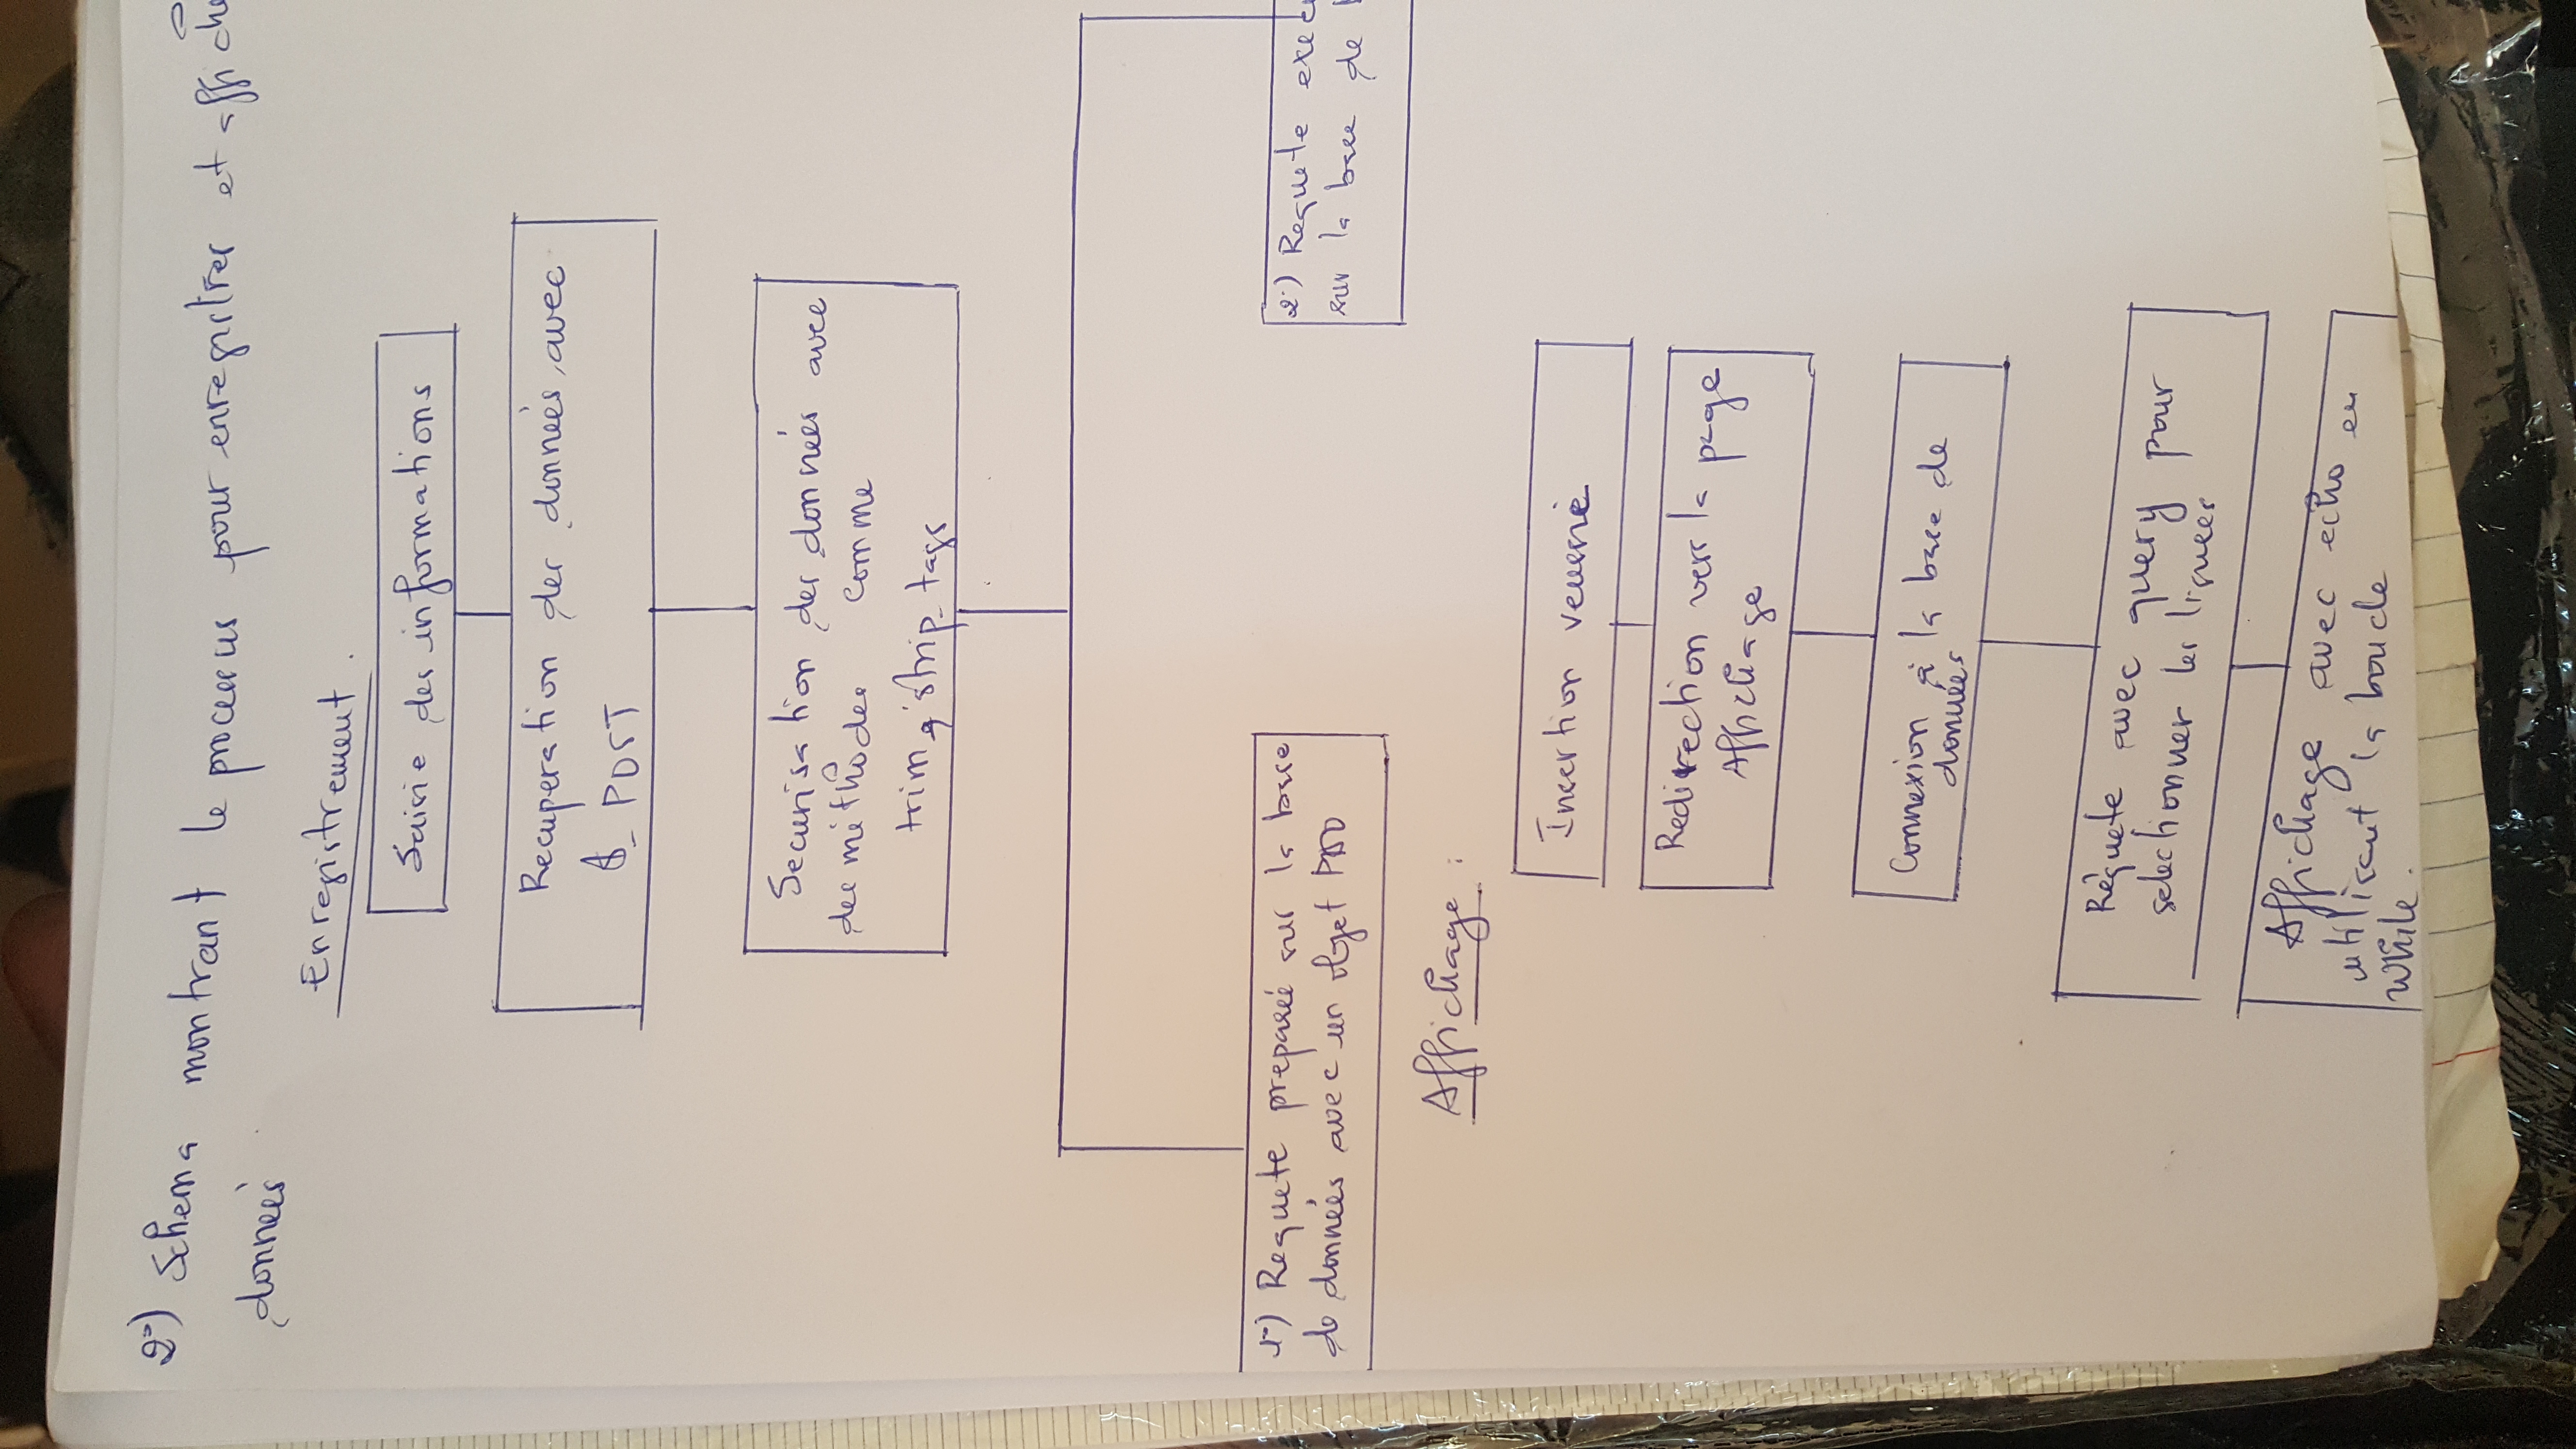 2°) Schema montrant le processus pour enregistrer et affiche
données
Enregistrement.
Saisie des informations
Recuperation des données avec
$_POST
Securisation des données avec
des méthodes comme
trim, strip_tags
1°) Requete preparée sur la base
de données avec un objet PDO
2°) Requete exec
sur la base de
Affichage :
Insertion
Redirection vers la page
Affichage
Connexion à la base de
données
Requete avec query pour
selectionner les
Affichage avec echo en
utilisant la boucle
While.